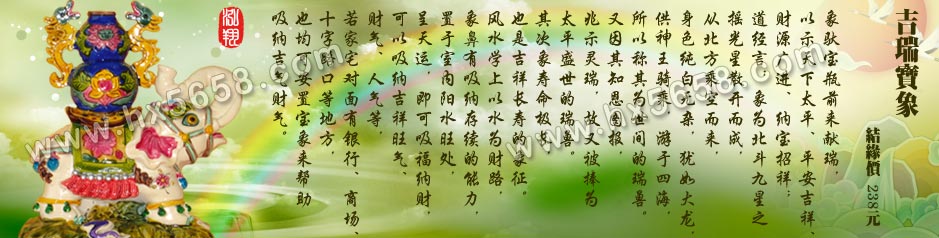 吉瑞寶象
結緣價 238元
象馱宝瓶前来献瑞，
以示天下太平、平安吉祥、
财源广进、纳宝招祥；
道经言，象为北斗九星之
摇光星散开而成，
从北方乘空而来，
身色纯白无杂，犹如大龙，
供神王骑乘，游于四海，
所以称其为世间的瑞兽。
又因其知恩图报，
兆示灵瑞，故又被捧为
太平盛世的瑞喜。
其次象寿命极长，
也是吉祥长寿的象征。
风水学上以水为财路，
象鼻有吸水存续的能力，
置于室内阳水旺处，
呈天运，即可吸福纳财，
可以吸纳吉祥旺气、
财气、人气等，
若家宅对面有银行、商场、
十字路口等地方，
也均可安置宝象来帮助
吸纳吉气财气。
泓翔
www.hx5658.com
www.hx5658.com
www.hx5658.com